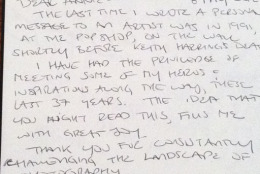 DEAR ANNIE
THE LAST TIME I WROTE A PERSONAL
MESSAGE TO AN ARTIST WAS IN 1991,
AT THE POP SHOP, ON THE WALL
SHORTLY BEFORE KEITH HARING'S DEATH
I HAVE HAD THE PRIVILEDGE OF
MEETING SOME OF MY HEROES &
INSPIRATIONS ALONG THE WAY, THESE
LAST 37 YEARS. THE IDEA THAT
YOU MIGHT READ THIS, FILLS ME
WITH GREAT JOY.
THANK YOU FOR CONSTANTLY
CHALLENGING THE LANDSCAPE OF